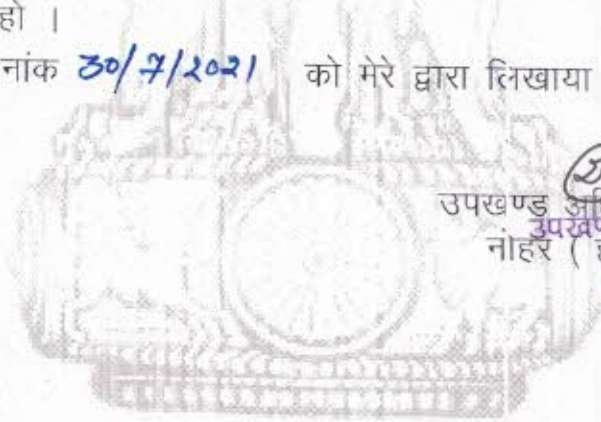 हो ।
नांक 30/7/2021 को मेरे द्वारा लिखाया
उपखण्ड
उपखण
नोहर (